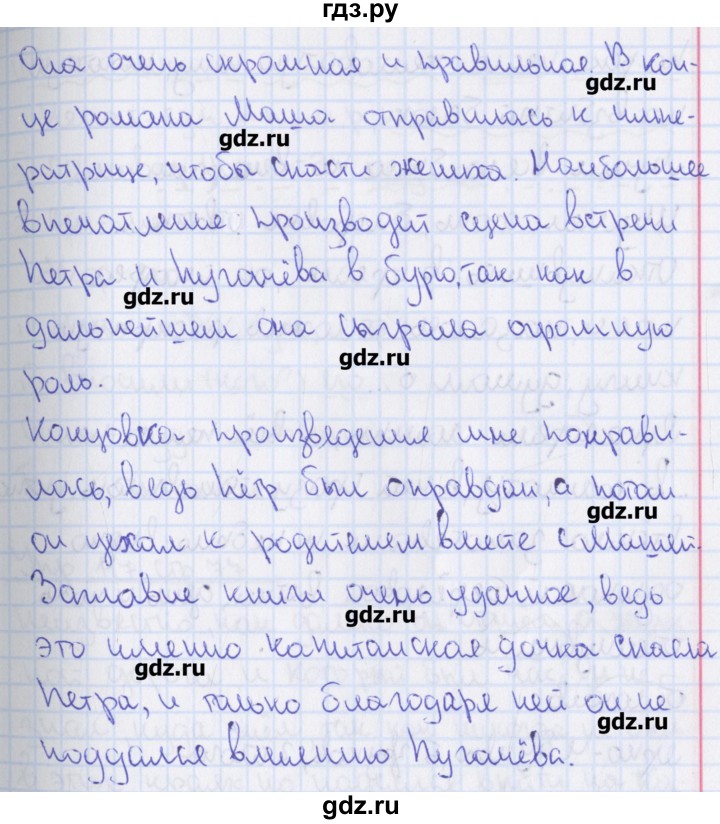 гдз.ру
Она очень скромная и правильная. В кон-
gdz.ru
це романа Маша отправилась к импе-
gdz.ru
ратрице, чтобы спасти жениха. Наибольшее
впечатление производит сцена встречи
Петра и Пугачёва в бурю, так как в
gdz.ru
дальнейшем она сыграла огромную
gdz.ru
роль.
Концовка произведения мне понрави-
лась, ведь Пётр был оправдан, а потом
gdz.ru
он уехал к родителям вместе с Машей.
Заглавие книги очень удачное, ведь
gdz.ru
это именно капитанская дочка спасла
gdz.ru
Петра, и только благодаря ней он не
gdz.ru
поддался влиянию Пугачёва.
gdz.ru